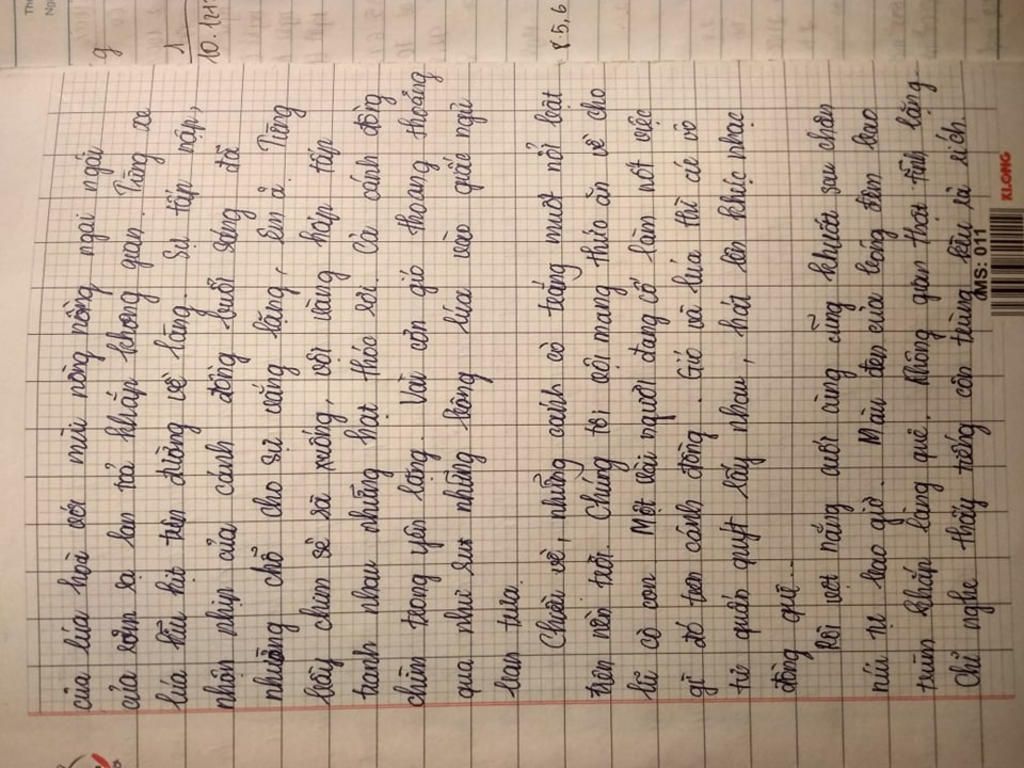 của lúa hoà với mùi nồng nồng ngai ngái
của rơm rạ lan toả khắp không gian. Từng xe
lúa líu kít trên đường về làng. Sự tấp nập,
nhộn nhịp của cánh đồng buổi sáng đã
nhường chỗ cho sự vắng lặng, êm ả. Từng
bầy chim sẻ sà xuống, vội vàng hấp tấp
tranh nhau những hạt thóc rơi. Cả cánh đồng
chìm trong yên lặng. Vài cơn gió thoang thoảng
qua như ru những bông lúa vào giấc ngủ
ban trưa.
Chiều về, những cánh cò trắng muốt nổi bật
trên nền trời. Chúng tôi vội mang thức ăn về cho
lũ cò con. Một vài người đang cố làm nốt việc
gì đó trên cánh đồng. Gió và lúa thì cứ vô
tư quấn quýt lấy nhau, hát lên khúc nhạc
đồng quê...
Rồi vệt nắng cuối cùng cũng khuất sau chân
núi tự bao giờ. Màn đen của bóng đêm bao
trùm khắp làng quê. Không gian thật tĩnh lặng.
Chỉ nghe thấy tiếng côn trùng kêu rả rích.
g
1
10.12
8.5,6
XLONG
MS: 011